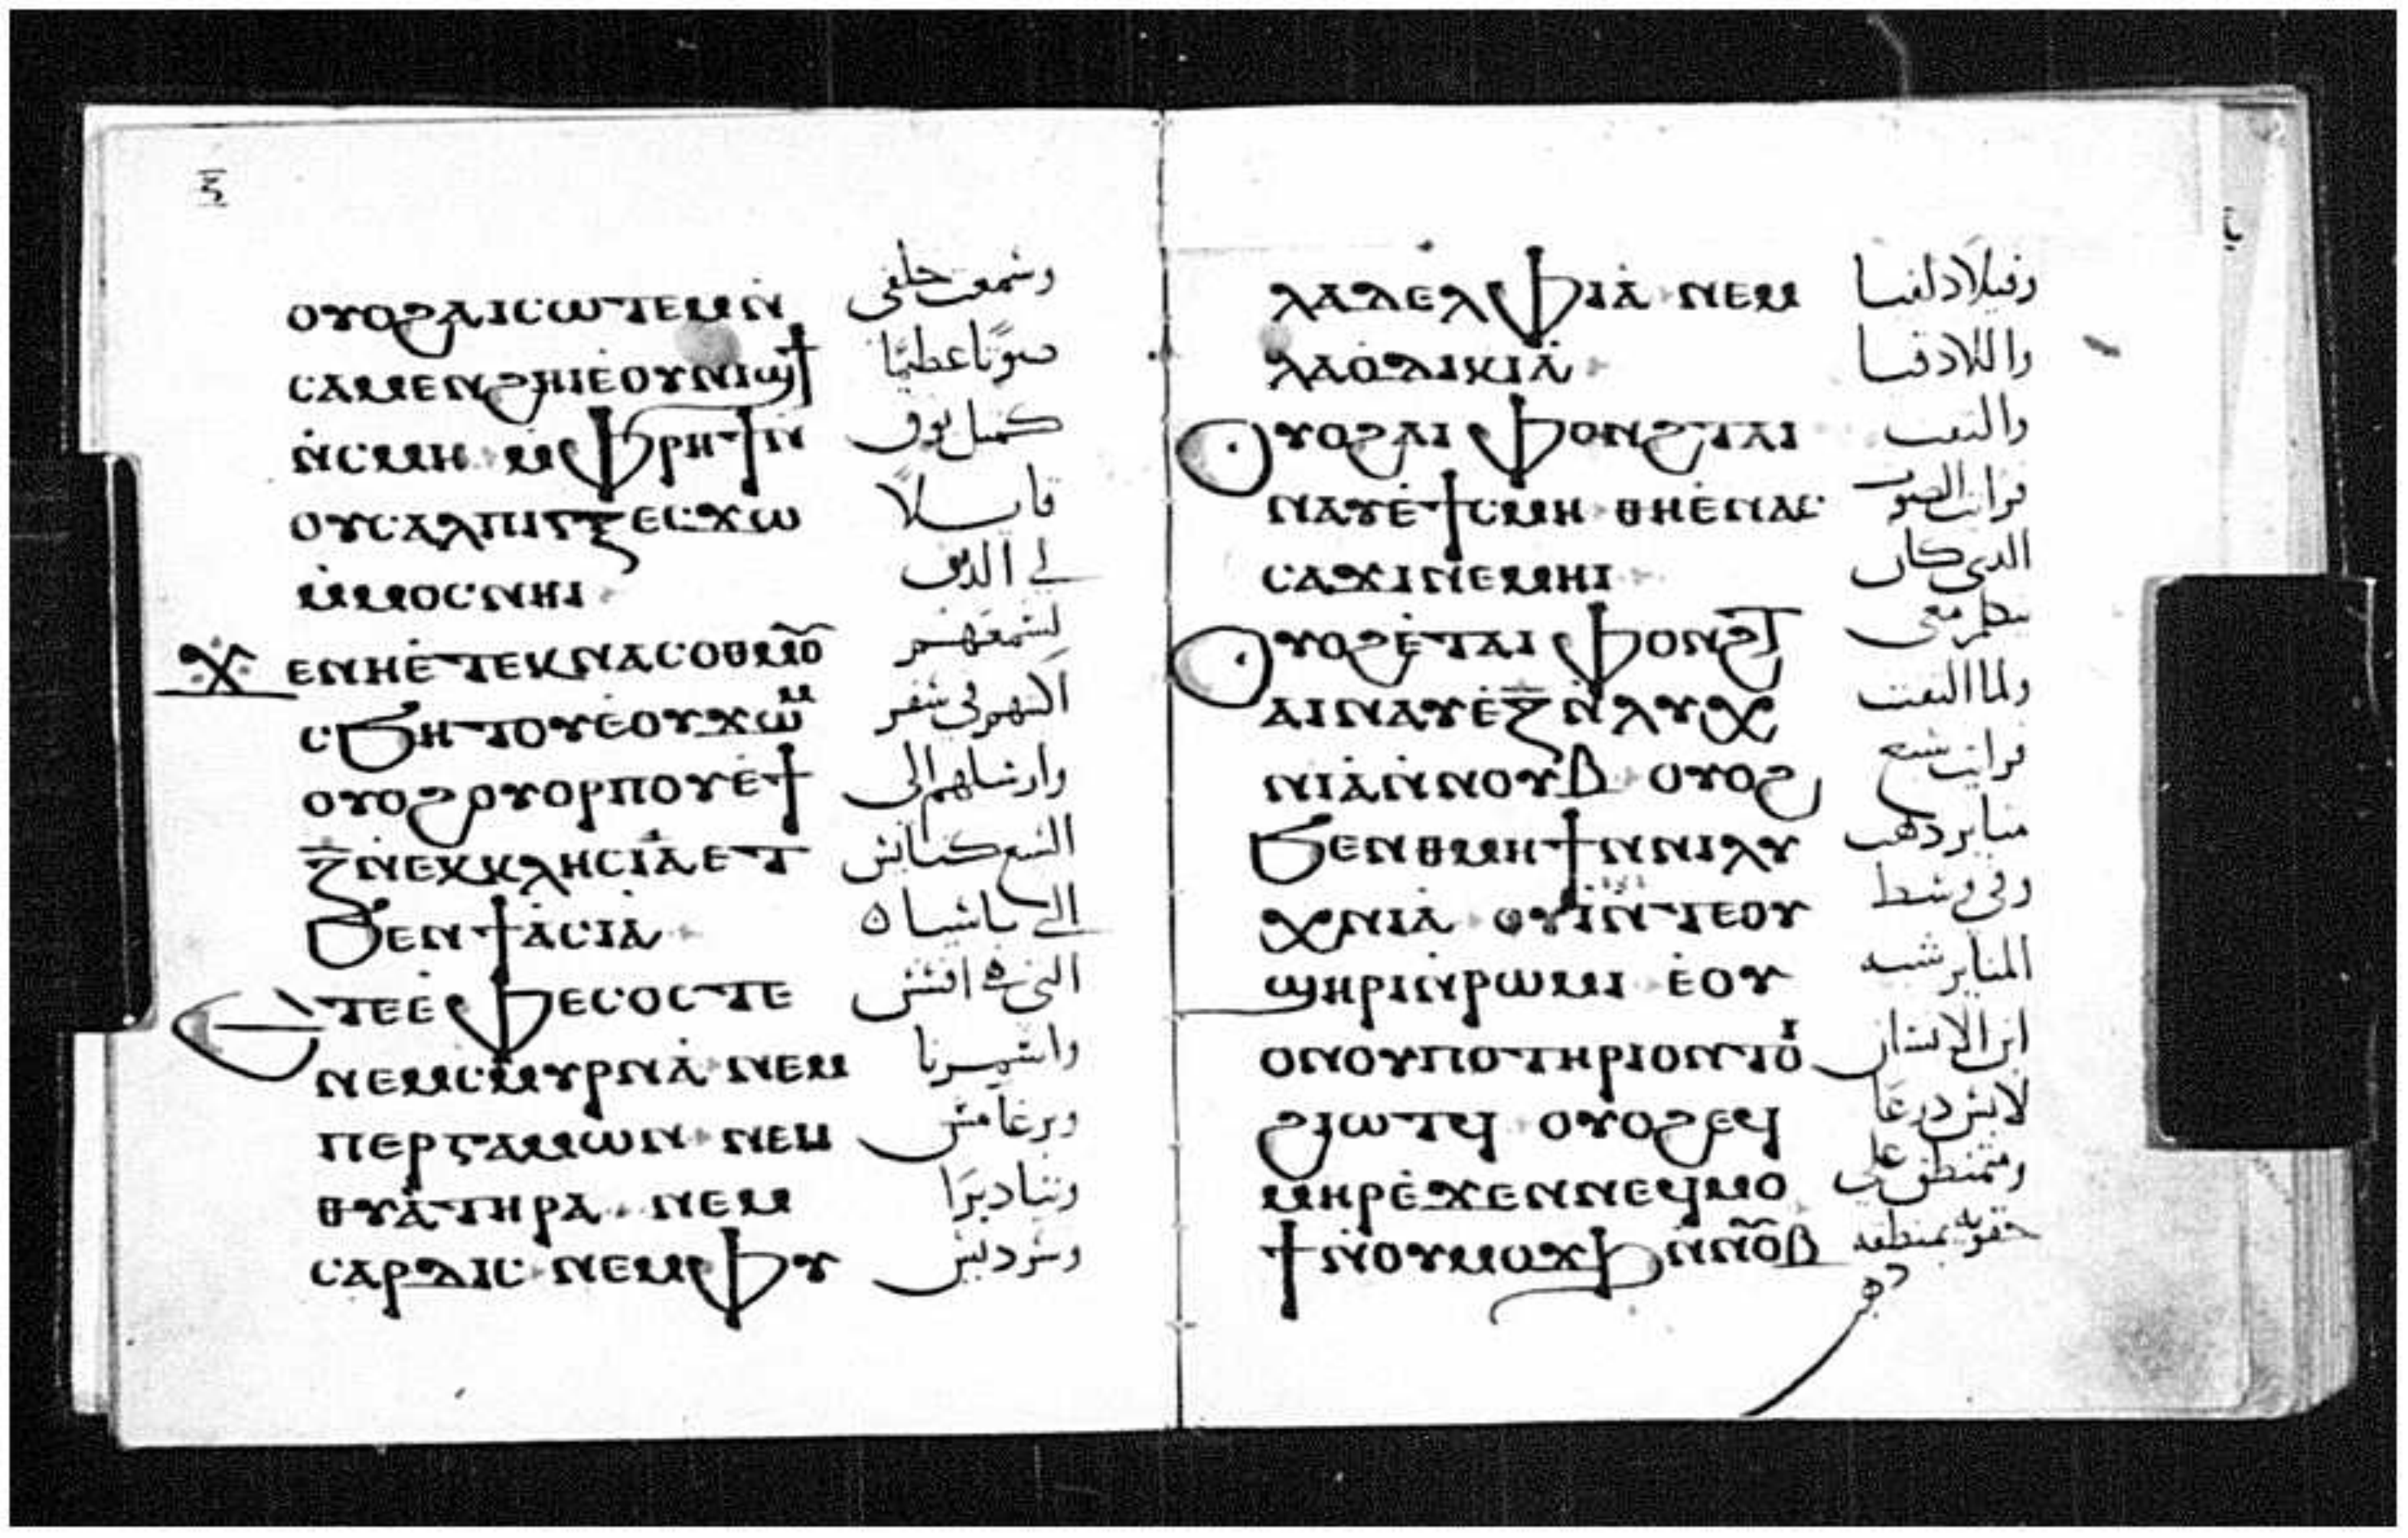 ⲟⲩⲟϩⲁⲓⲥⲱⲧⲉⲙⲛ̀
وسمعت خلفى
ⲥⲁⲙⲉⲛϩⲏⲓⲉ̀ⲟⲩⲛⲓϣϯ
صوتًا عظيمًا
ⲛ̀ⲥⲙⲏ ⲙ̀ⲫⲣⲏϯⲛ
كمثل بوق
ⲟⲩⲥⲁⲗⲡⲓⲅⲝⲉⲥϫⲱ
قايـلاً
ⲙ̀ⲙⲟⲥⲛⲏⲓ
لي الذين
ϫⲉⲛⲏⲉ̀ⲧⲉⲕⲛⲁⲥⲟⲑⲙⲟ̅
تسمعهم
ⲥϧⲏⲧⲟⲩⲉ̀ⲟⲩϫⲱⲙ
اكتبهم في سفر
ⲟⲩⲟϩⲟⲩⲟⲣⲡⲟⲩⲉ̀ϯ
وارسلهم الى
ⲍ̅ⲛⲉⲕⲕⲗⲏⲥⲓⲁ̀ⲉⲧ
السبع كنايس
ϧⲉⲛϯⲁ̀ⲥⲓⲁ̀
ⲉⲧⲉⲉ̀ⲫⲉⲥⲟⲥⲧⲉ
التى هى افسس
ⲛⲉⲙⲥⲙⲩⲣⲛⲁ̀ ⲛⲉⲙ
واسميرنا
ⲡⲉⲣⲅⲁⲙⲱⲛ ⲛⲉⲙ
وبرغامس
ⲑⲩⲁ̀ⲧⲏⲣⲁ ⲛⲉⲙ
وتياديرا
ⲥⲁⲣⲇⲓⲥ ⲛⲉⲙⲫⲩ
وسرديس
ⲗⲁⲇⲉⲗⲫⲓⲁ̀ ⲛⲉⲙ
وفيلادلفيا
ⲗⲁⲟ̀ⲇⲓⲕⲓⲁ̀
واللادقيا
ⲟⲩⲟϩⲁⲓ ⲫⲟⲛϩⲧⲁⲓ
والتفت
ⲛⲁⲩⲉ̀ϯⲥⲙⲏ ⲑⲏⲉ̀ⲛⲁⲥ
فرايت الصوت
ⲥⲁϫⲓⲛⲉⲙⲏⲓ
الذي كان
ⲟⲩⲟϩⲉ̀ⲧⲁⲓ ⲫⲟⲛϩⲧ
يتكلم معى
ⲁⲓⲛⲁⲩⲉ̀ⲍ̅ⲛ̀ⲗⲩⲭ
ولما التفت
ⲛⲓⲁ̀ⲛ̀ⲛⲟⲩⲃ ⲟⲩⲟϩ
فرايت سبع
ϧⲉⲛⲑⲙⲏϯⲛⲛⲓⲗⲩ
مناير ذهب
ⲭⲛⲓⲁ̀ ⲟⲩⲓ̀ⲛ̀ⲧⲉⲟⲩ
وفى وسط
ϣⲏⲣⲓⲛ̀ⲣⲱⲙⲓ ⲉ̀ⲟⲩ
المناير شبه
ⲟⲛⲟⲩⲡⲟⲧⲏⲣⲓⲟⲛⲧⲟⲓ
ابن الانسان
ϩⲓⲱⲧϥ ⲟⲩⲟϩⲉϥ
لابس درعًا
ⲙⲏⲣⲉ̀ϫⲉⲛⲛⲉϥⲙⲟ
ومتمنطق على
ϯⲛ̀ⲟⲩⲙⲟϫϧ ⲛ̀ⲛⲟ̅ⲃ
حقويه بمنطقه
ذهب